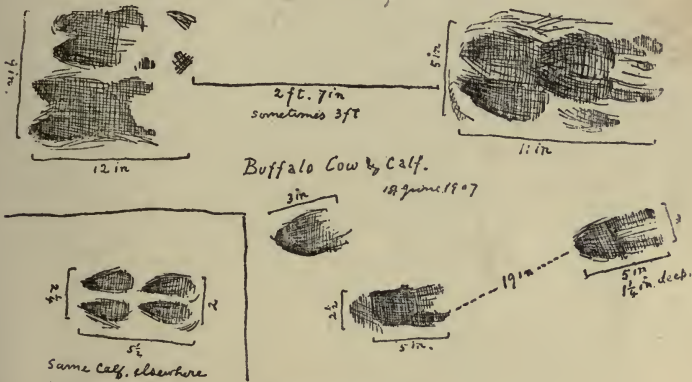 9 in.
5 in
2 ft. 7 in
sometimes 3 ft
12 in
11 in
Buffalo Cow & Calf.
18 June 1907
3 in
2 1/4
2
5 1/2
same calf. elsewhere
2 1/2
5 in.
19 in
5 in
1 1/4 in. deep.